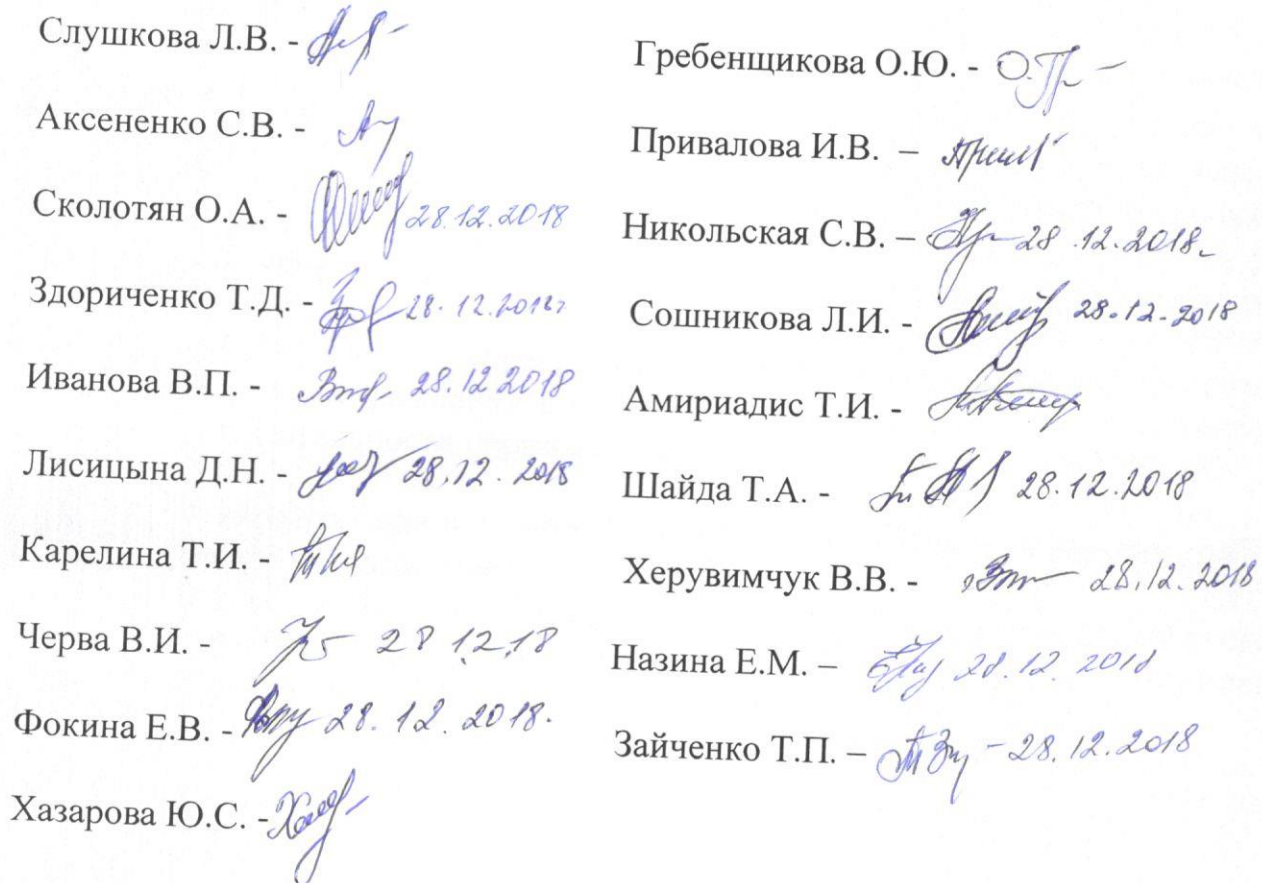 Слушкова Л.В. -
Аксененко С.В. -
Сколотян О.А. - 28.12.2018
Здориченко Т.Д. - 28.12.2018г
Иванова В.П. - 28.12 2018
Лисицына Д.Н. - 28.12.2018
Карелина Т.И. -
Черва В.И. - 28 12.18
Фокина Е.В. - 28.12.2018.
Хазарова Ю.С. -
Гребенщикова О.Ю. -
Привалова И.В. –
Никольская С.В. – 28.12.2018г
Сошникова Л.И. - 28.12.2018
Амириадис Т.И. -
Шайда Т.А. - 28.12.2018
Херувимчук В.В. - 28.12.2018
Назина Е.М. – 28.12.2018
Зайченко Т.П. – 28.12.2018